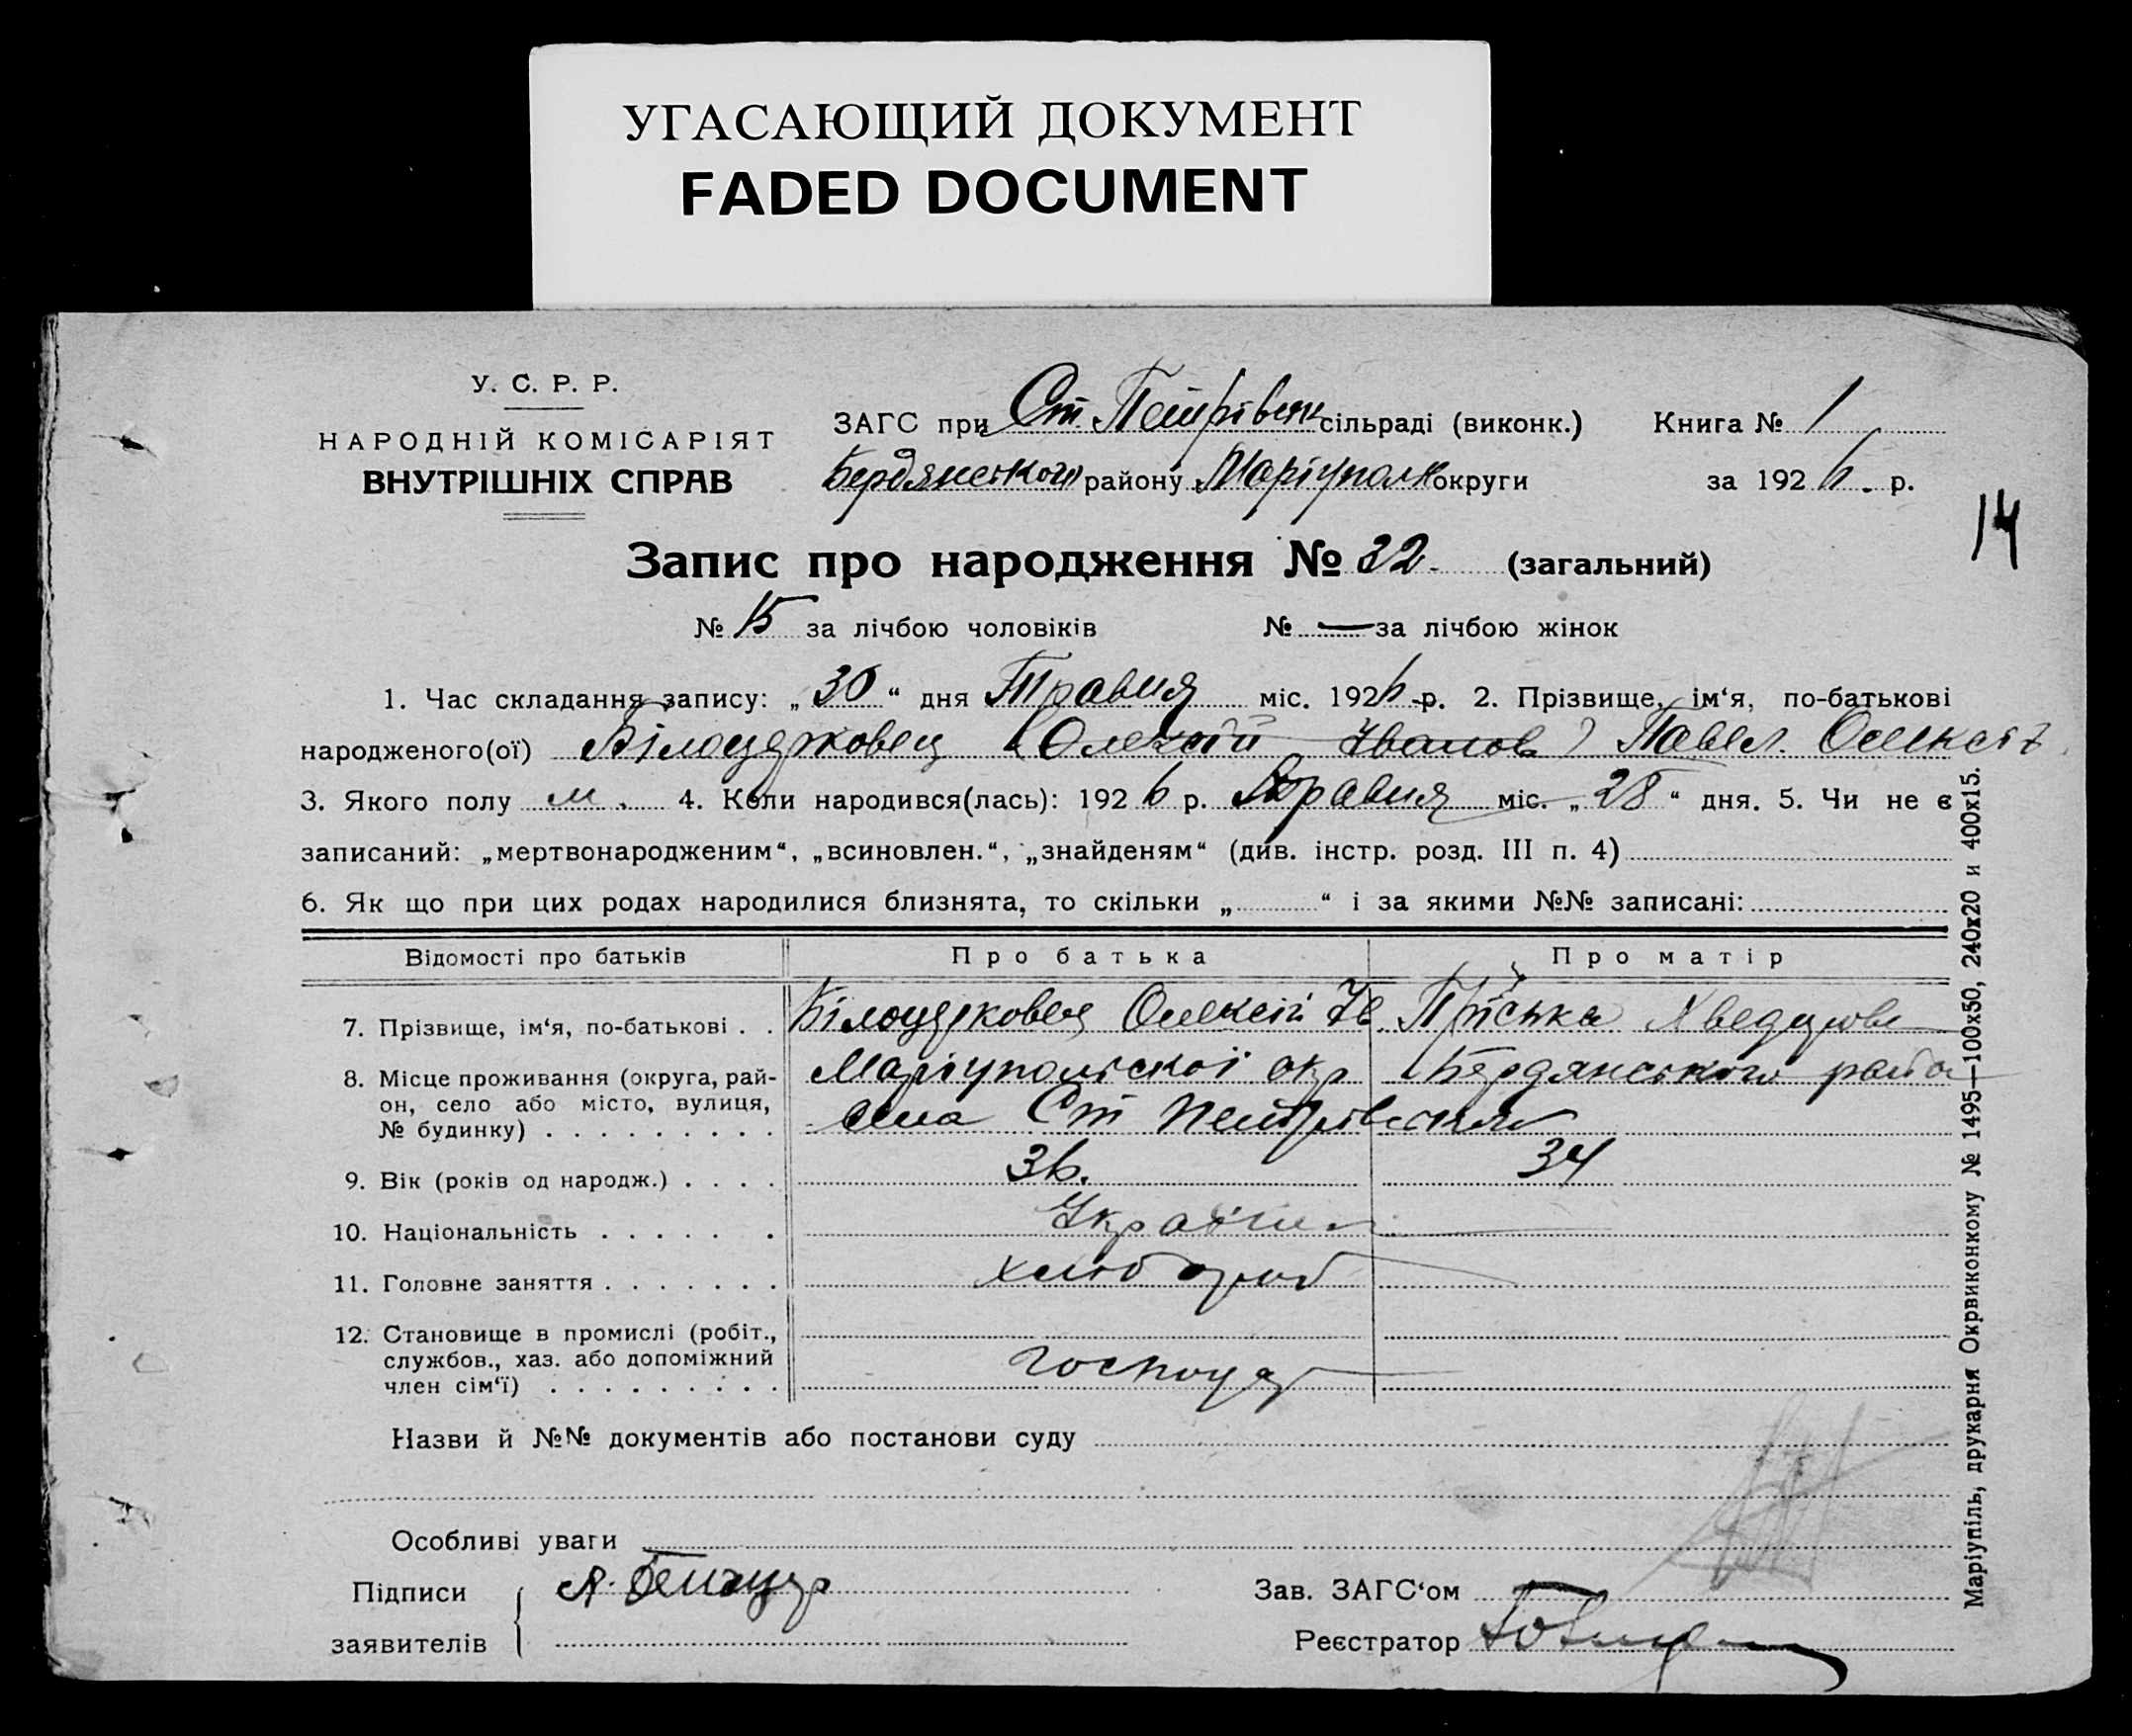 УГАСАЮЩИЙ ДОКУМЕНТ
FADED DOCUMENT
У. С. Р. Р.
НАРОДНІЙ КОМІСАРІЯТ
ВНУТРІШНІХ СПРАВ
ЗАГС при Ст. Петрівськ сільраді (виконк.) Книга № 1
Бердянського району Маріупольк округи за 1926. р.
14
Запис про народження № 32. (загальний)
№ 15 за лічбою чоловіків № — за лічбою жінок
1. Час складання запису: „30“ дня Травня міс. 1926 р. 2. Прізвище, ім‘я, по-батькові
народженого(ої) Білоцерковец (Олексій Иванов) Павел. Олексів
3. Якого полу м. 4. Коли народився(лась): 1926 р. Травня міс. „28“ дня. 5. Чи не є
записаний: „мертвонародженим“, „всиновлен.“, „знайденям“ (див. інстр. розд. III п. 4)
6. Як що при цих родах народилися близнята, то скільки „ “ і за якими №№ записані:
Відомості про батьків Про батька Про матір
7. Прізвище, ім‘я, по-батькові . . Білоцерковец Олексій Ів Пріська Хведорове
8. Місце проживання (округа, рай- Маріупольскої окр Бердянського райо
он, село або місто, вулиця, села Ст Петрівськ
№ будинку) . . . . . . . . .
9. Вік (років од народж.) . . . . 36. 34
10. Національність . . . . . . Україн
11. Головне заняття . . . . . . . хлібороб
12. Становище в промислі (робіт.,
службов., хаз. або допоміжний господ
член сім‘ї) . . . . . . . . .
Назви й №№ документів або постанови суду
Особливі уваги
Підписи
заявителів
Зав. ЗАГС‘ом
Реєстратор
Маріупіль, друкарня Окрвиконкому № 1495—100х50, 240х20 и 400х15.